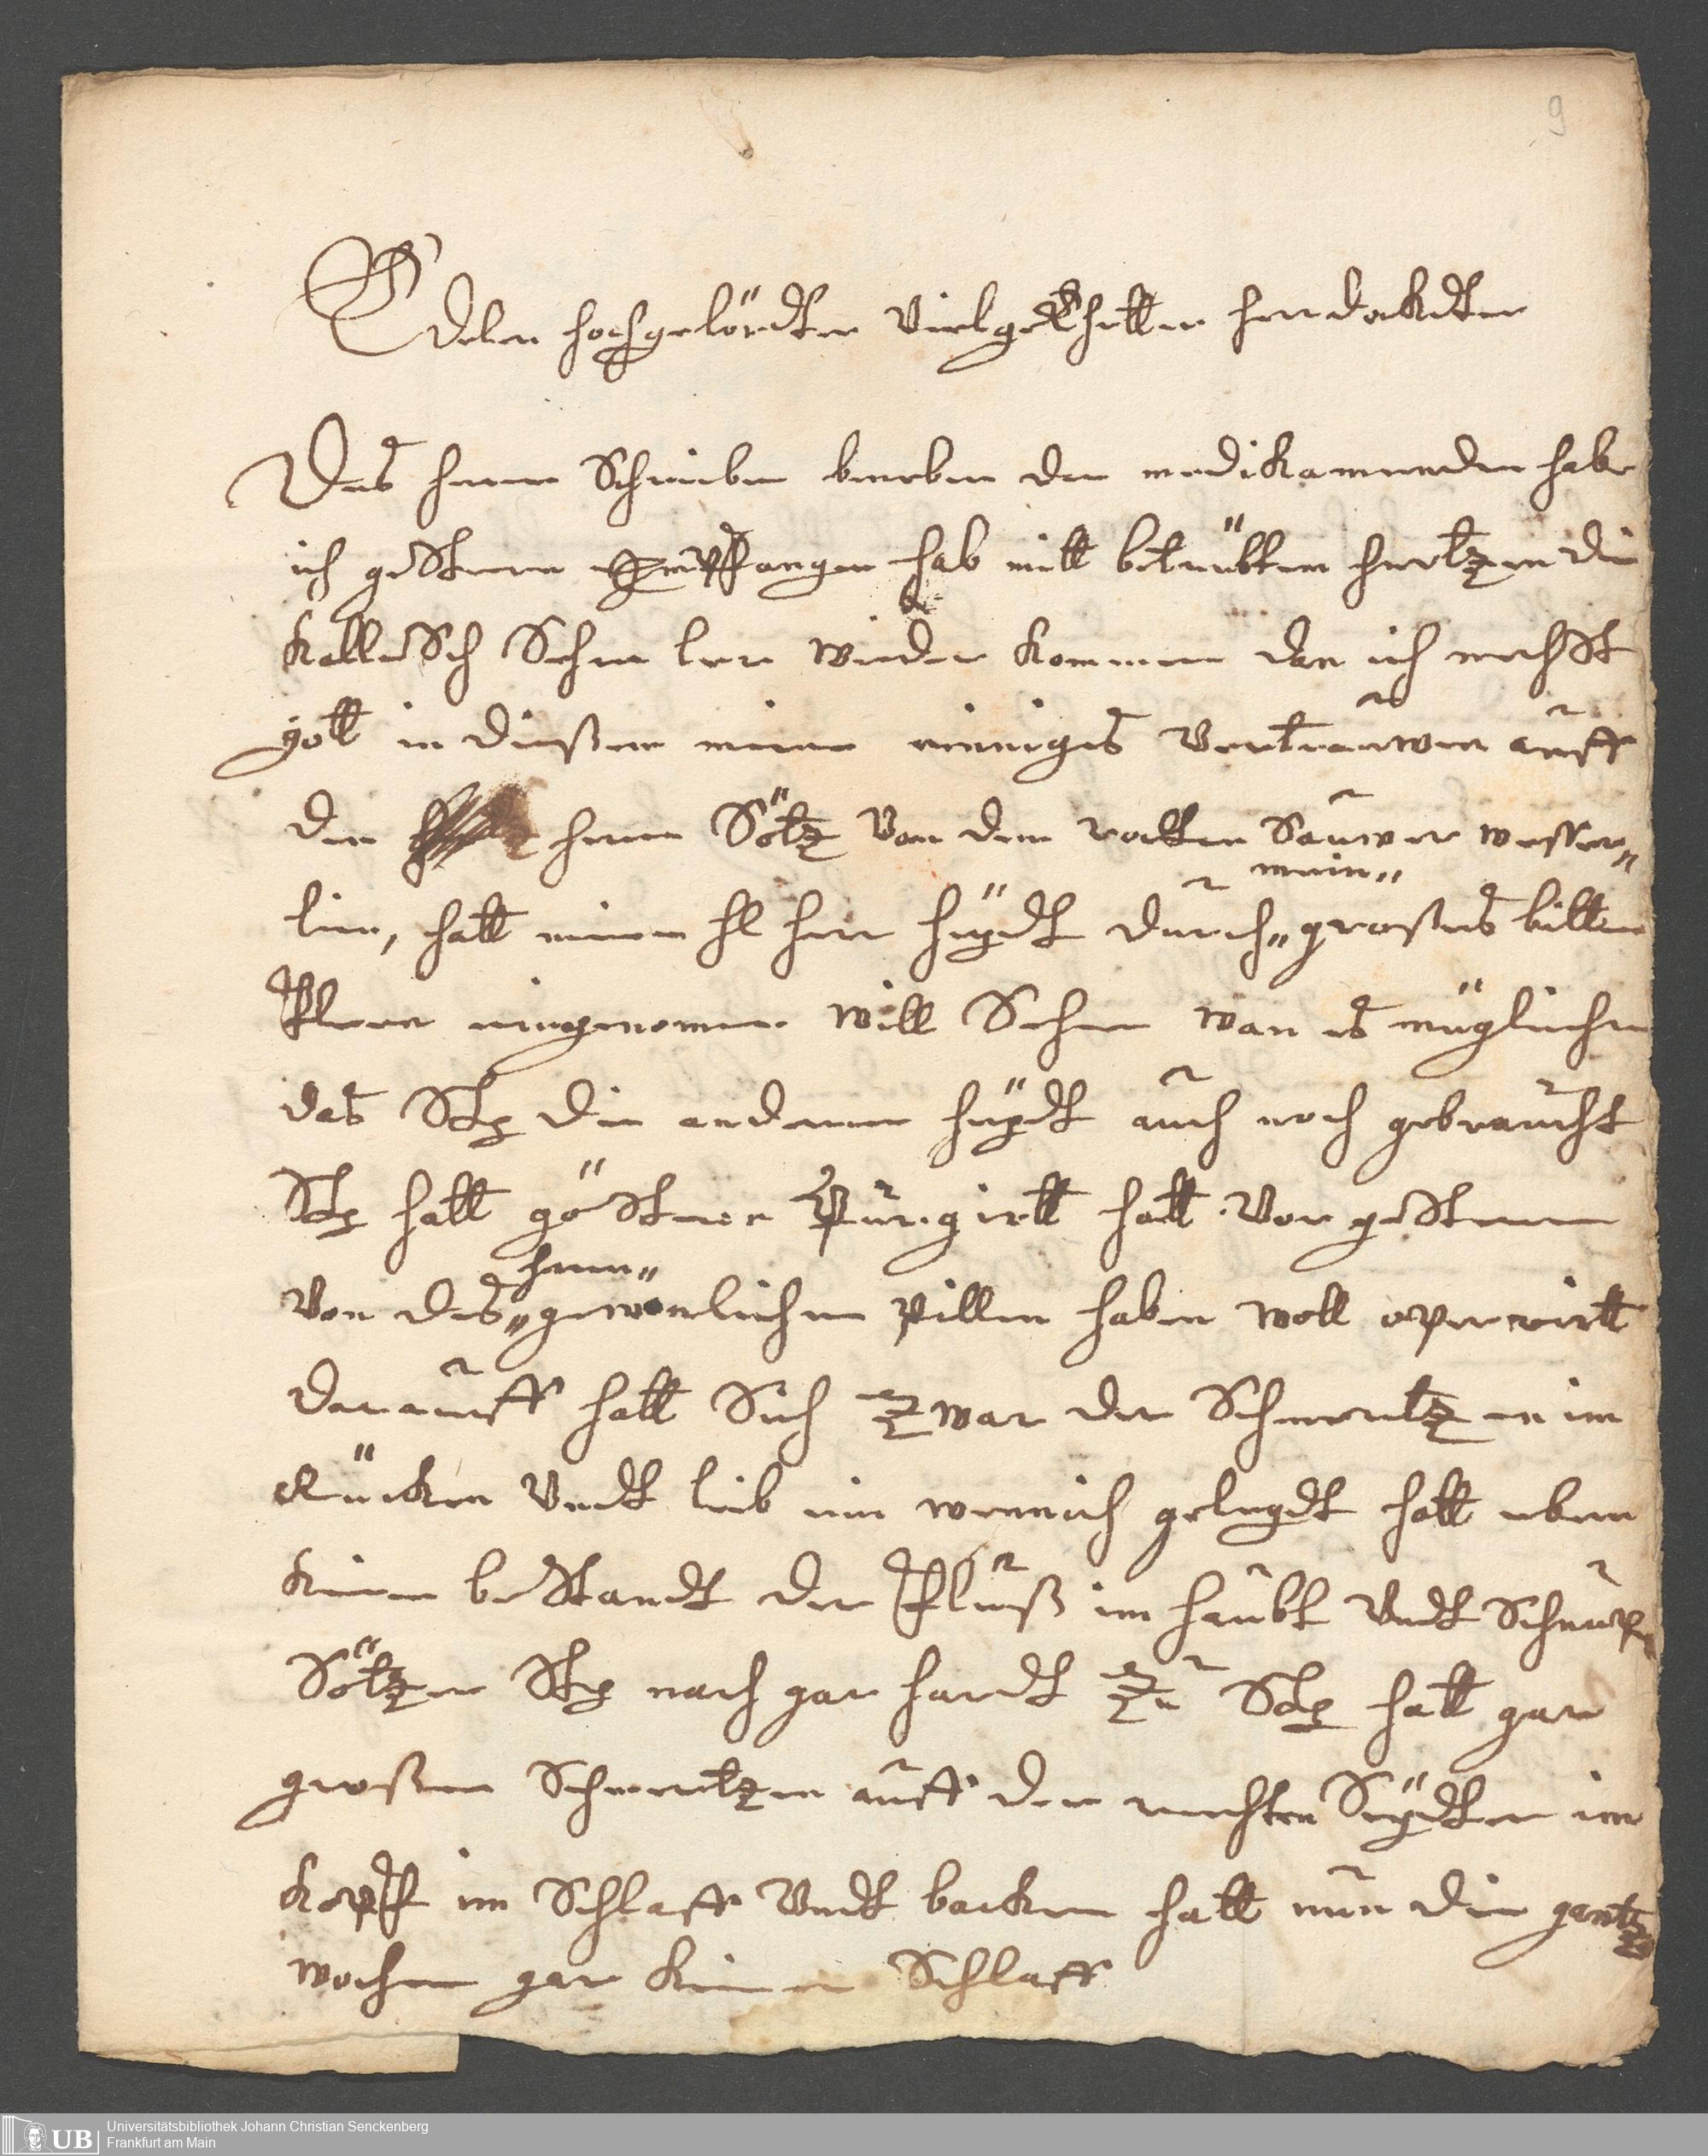 9
Edeler hochgelördter Vielgeehrtter herr dockdter
Des herrn Schreiben beneben den medikamenden habe
ich gestteren empffangen hab mitt betrübttem hertzen die
Sehen wieder kommen den ich nechst
gott in dießem meine einniges Vertrauwen auff
den herrn Sötz Von dem rotten Sauwer wesser„
lin, hatt meinen hl herr heÿdt durch„ großes bitten
mein„
eingenomen will Sehen wan es müglichen
das Stz die anderen heÿdt auch noch gebraucht
Stz hatt göstteren Purgirtt hatt Vor gestteren
Von des„ gewonlichen pillen haben woll operirtt
herrn„
darauff hatt Sich zwar der Schmertzen im
Rücken Vndt leib ein wennich gelegdt hatt aben
keinen besttandt der Fluß im haubt Vndt Schnup
Sötzen Stz noch gar hardt Zu Stz hatt gar
großen Schmertzen auff der rechten Seÿdten im
kopff im Schlaff Vndt backen hatt nun die gantze
wochen gar keinen Schlaff
UB Universitätsbibliothek Johann Christian Senckenberg
Frankfurt am Main